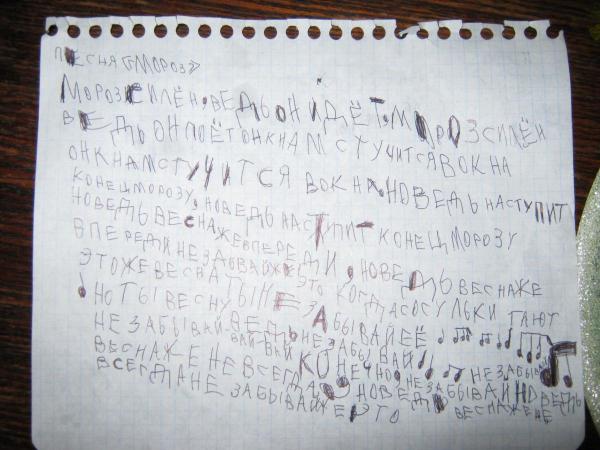 ПЕСНЯ «МОРОЗ»
МОРОЗ СИЛЁН, ВЕДЬ ОН ИДЁТ. МОРОЗ СИЛЁН
ВЕДЬ ОН ПОЁТ ОН К НАМ СТУЧИТСЯ В ОКНА
ОН К НАМ СТУЧИТСЯ В ОКНА. НО ВЕДЬ НАСТУПИТ
КОНЕЦ МОРОЗУ, НО ВЕДЬ НАСТУПИТ КОНЕЦ МОРОЗУ
НО ВЕДЬ ВЕСНА ЖЕ ВПЕРЕДИ, НО ВЕДЬ ВЕСНА ЖЕ
ВПЕРЕДИ НЕ ЗАБЫВАЙ ЖЕ ЭТО КОГДА СОСУЛЬКИ ТАЮТ
ЭТО ЖЕ ВЕСНА ТЫ НЕ ЗАБЫВАЙ ЕЁ
! НО ТЫ ВЕСНУ НЕ ЗАБЫВАЙ!
НЕ ЗАБЫВАЙ ВЕДЬ НЕ ЗАБЫВАЙ
ВАЙ-ВАЙ КОНЕЧНО, НЕ ЗАБЫВАЙ
ВЕСНА ЖЕ НЕ ВСЕГДА, НО ВЕДЬ НЕ ЗАБЫВАЙ НО ВЕДЬ
ВСЕГДА НЕ ЗАБЫВАЙ ЖЕ ЕГО ВЕСНА ЖЕ НЕ